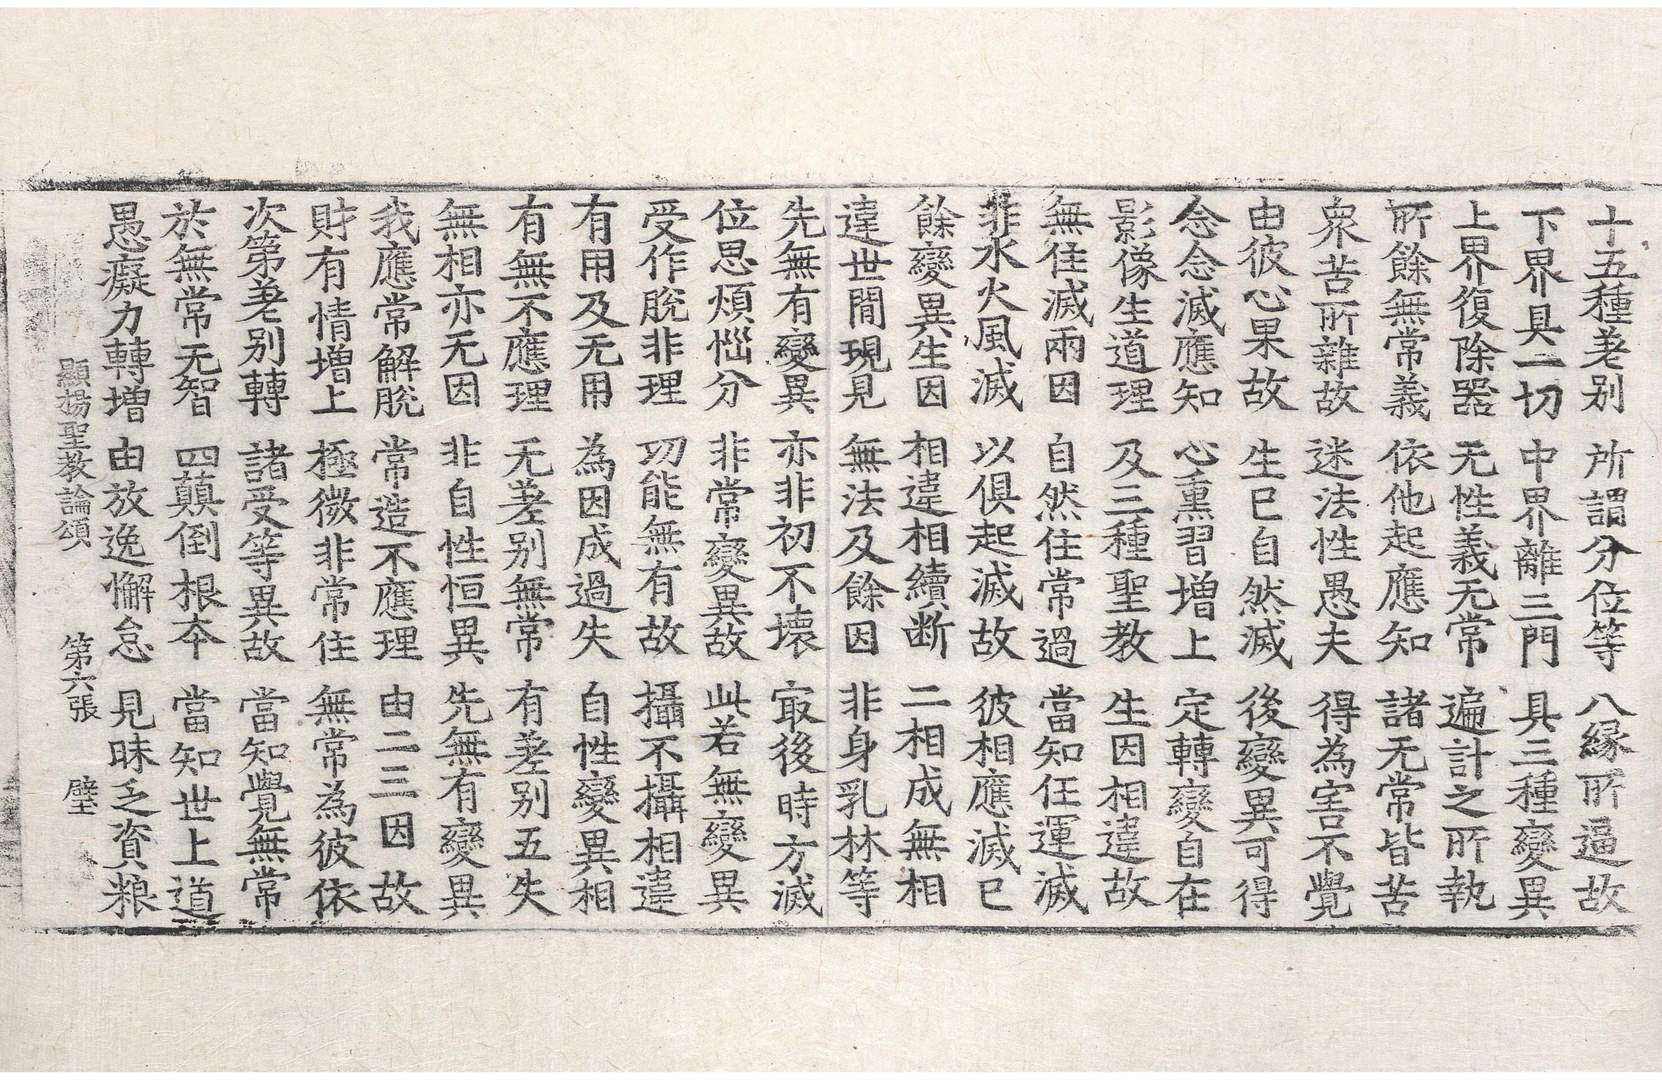 十五種差别 所謂分位等 八緣所逼故
下界具一切 中界離三門 具三種變異
上界復除器 无性義无常 遍計之所執
所餘無常義 依他起應知 諸无常皆苦
衆苦所雜故 迷法性愚夫 得為害不覺
由彼心果故 生已自然滅 後變異可得
念念滅應知 心熏習增上 定轉變自在
影像生道理 及三種聖教 生因相違故
無住滅兩因 自然住常過 當知任運滅
非水火風滅 以俱起滅故 彼相應滅已
餘變異生因 相違相續断 二相成無相
違世間現見 無法及餘因 非身乳林等
先無有變異 亦非初不壞 㝡後時方滅
位思煩惱分 非常變異故 此若無變異
受作脫非理 功能無有故 攝不攝相違
有用及无用 為因成過失 自性變異相
有無不應理 无差别無常 有差别五失
無相亦无因 非自性恒異 先無有變異
我應常解脫 常造不應理 由二三因故
財有情增上 極微非常住 無常為彼依
次第差别轉 諸受等異故 當知覺無常
於無常无智 四顛倒根夲 當知世上道
愚癡力轉增 由放逸懈怠 見昧乏資粮
顯揚聖教論頌 第六張 壁